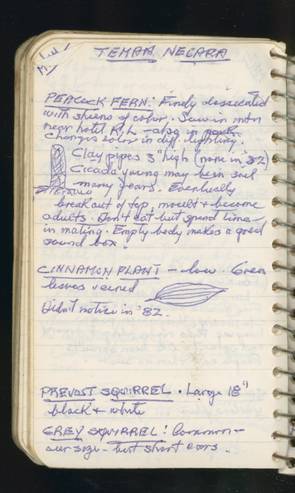 TEMAN NEGARA
PEACOCK FERN: Finely dissected
with sheens of color. Saw in mtn
near hotel K.L. - also in
changes color in diff. lighting.
Clay pipes 3" high (none in 82)
Cicada young may be in soil
many years. Eventually
break out of top, moult & become
adults. Don't eat but spend time
in mating. Empty body makes a good
sound box.
CINNAMON PLANT - low. Green
leaves veined
Didn't notice in '82.
PREVOST SQUIRREL. Large 18"
black & white
GREY SQUIRREL: Common -
our size - but short ears.